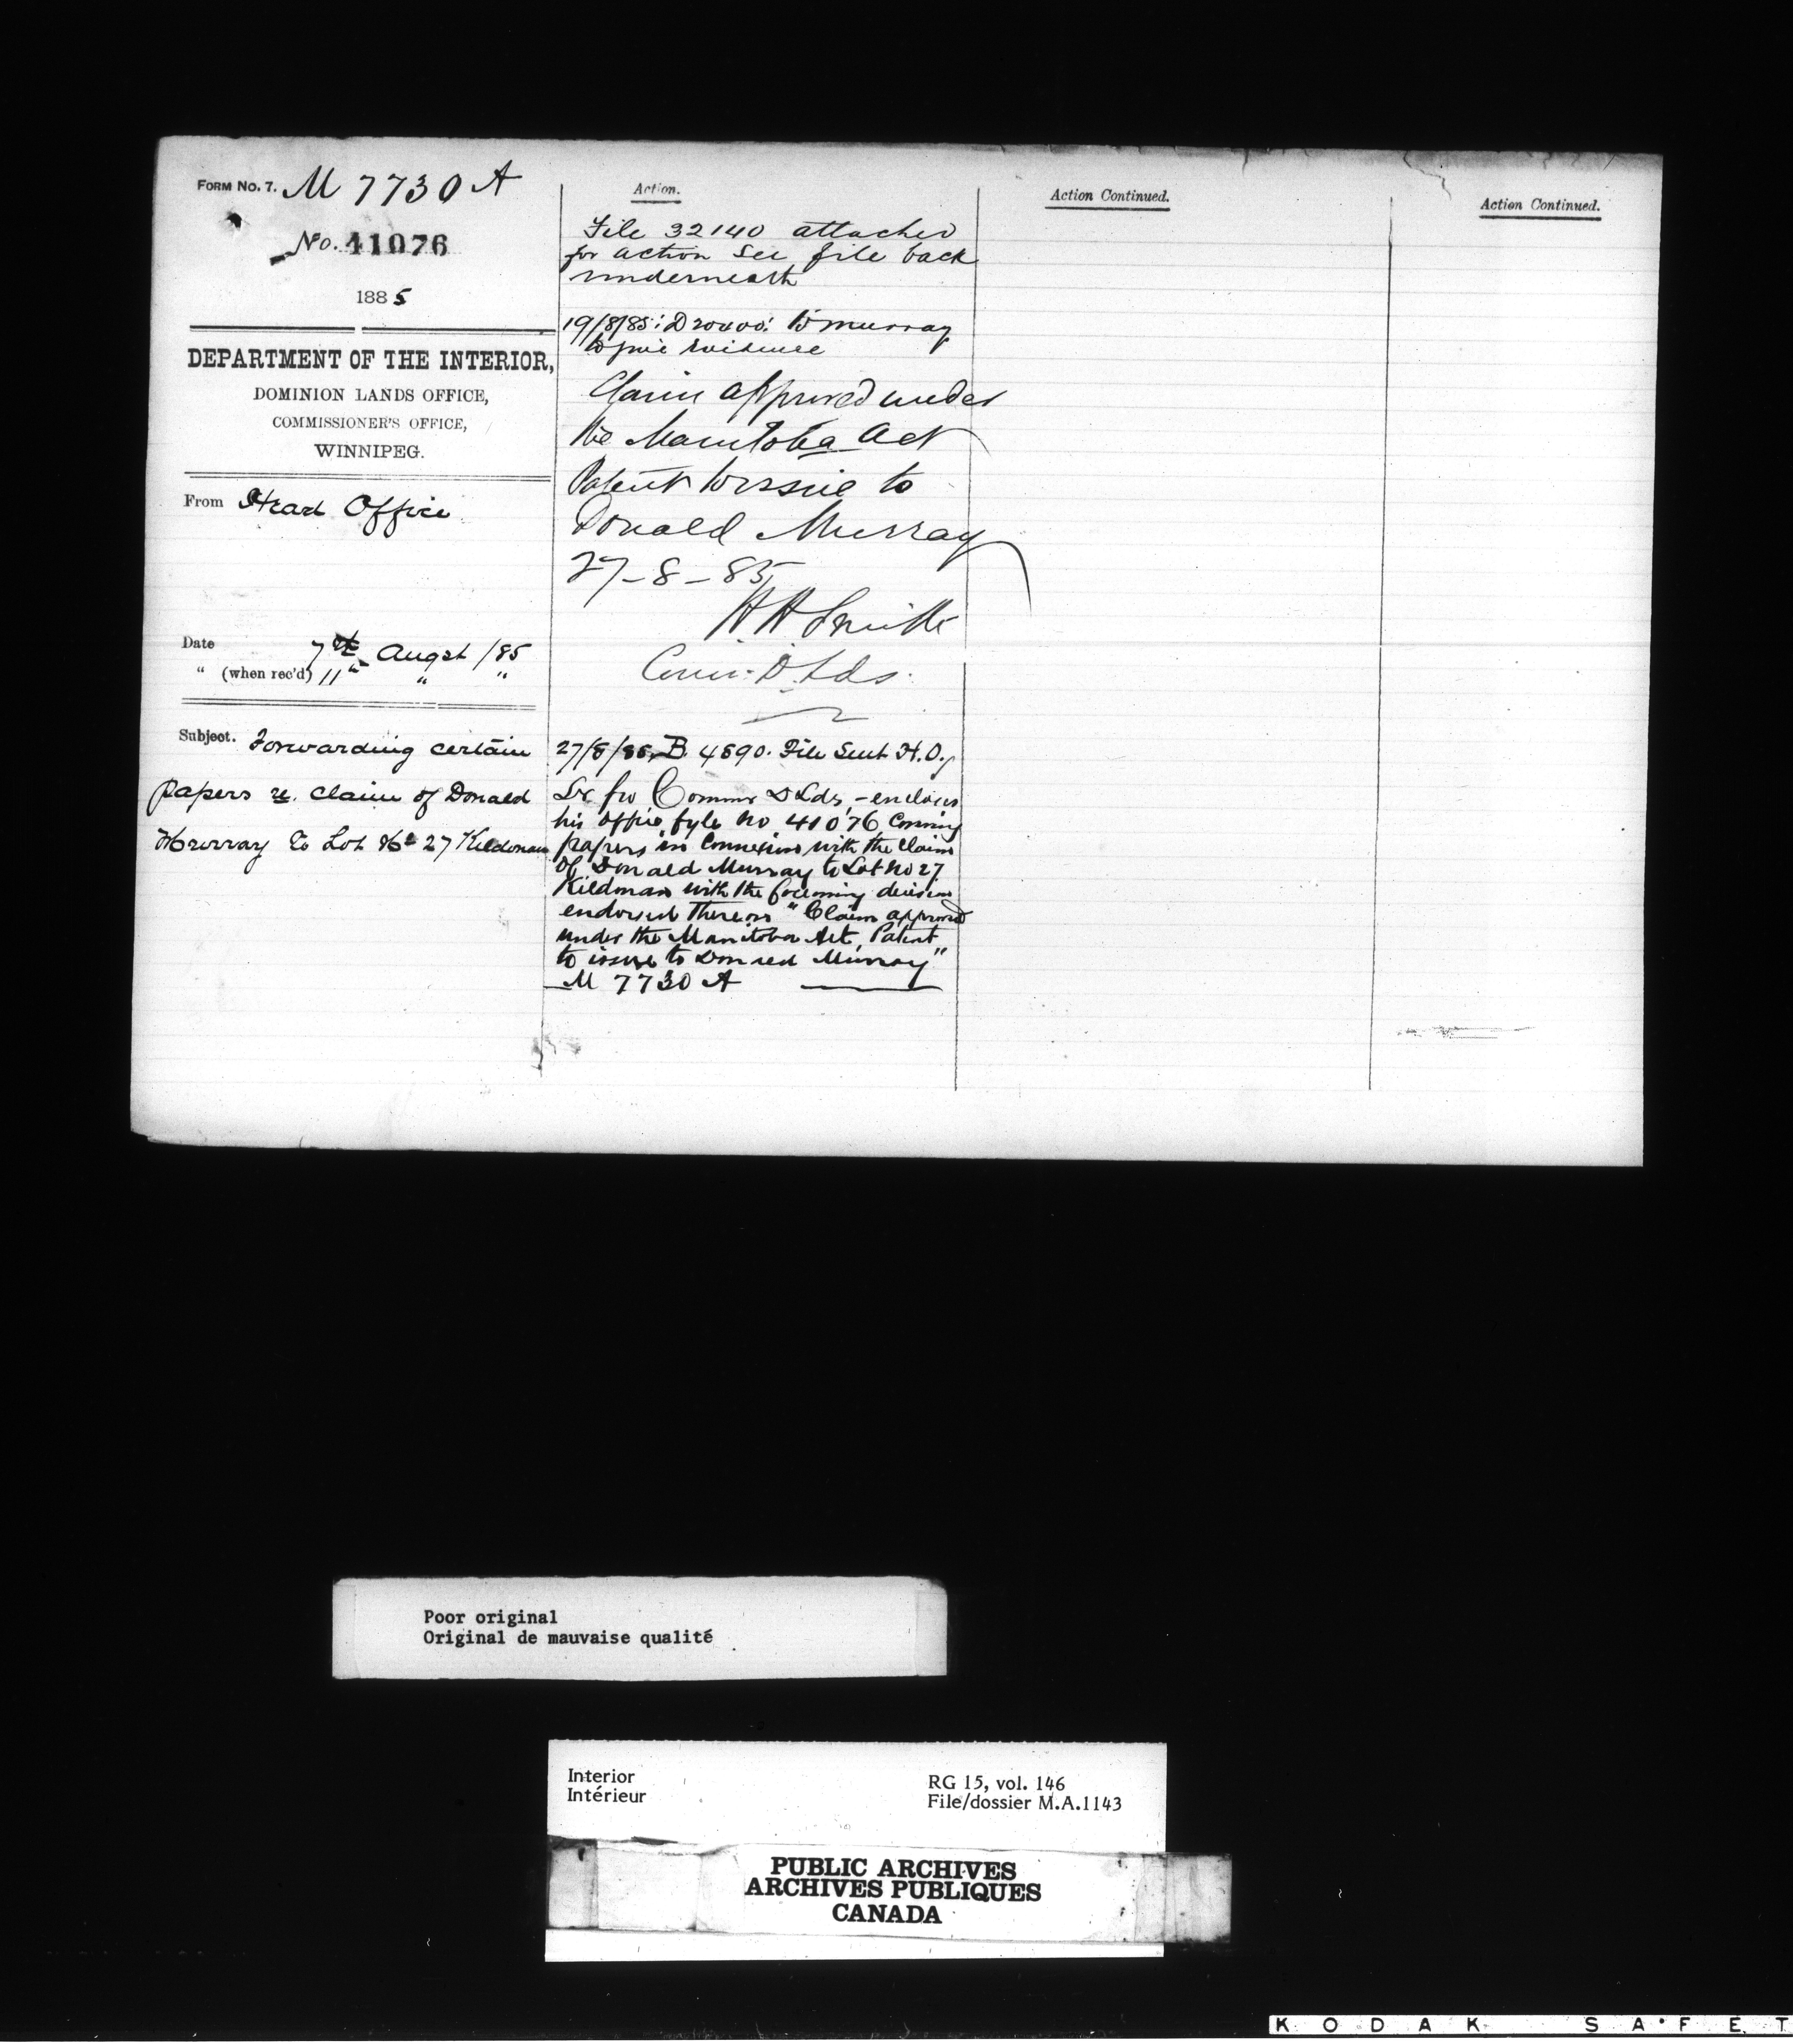 FORM NO. 7. M 7730 A
No. 41076
1885
DEPARTMENT OF THE INTERIOR,
DOMINION LANDS OFFICE,
COMMISSIONER'S OFFICE,
WINNIPEG.
From Head Office
Date 7th Augst /85
" (when rec'd) 11 " " "
Subject. Forwarding certain
papers re. claim of Donald
Murray to Lot No 27 Kildonan
Action.
File 32140 attached
for action See file back
underneath
19/8/85: to Murray
to give evidence
Claim approved under
the Manitoba Act
Patent to issue to
Donald Murray
27-8-85
H H Smith
Comr. D. Lds.
27/8/85 B. 4890. File Sent H.O.
Lr fro Commr D Lds, - encloses
his office fyle No 41076
papers in Connexion with the Claim
of Donald Murray to Lot No 27
Kildonan with the decision
endorsed thereon "Claim approved
under the Manitoba Act, Patent
to issue to Donald Murray"
M 7730 A
Action Continued.
Action Continued.
Poor original
Original de mauvaise qualité
Interior
Intérieur
RG 15, vol. 146
File/dossier M.A.1143
PUBLIC ARCHIVES
ARCHIVES PUBLIQUES
CANADA
KODAK SAFET